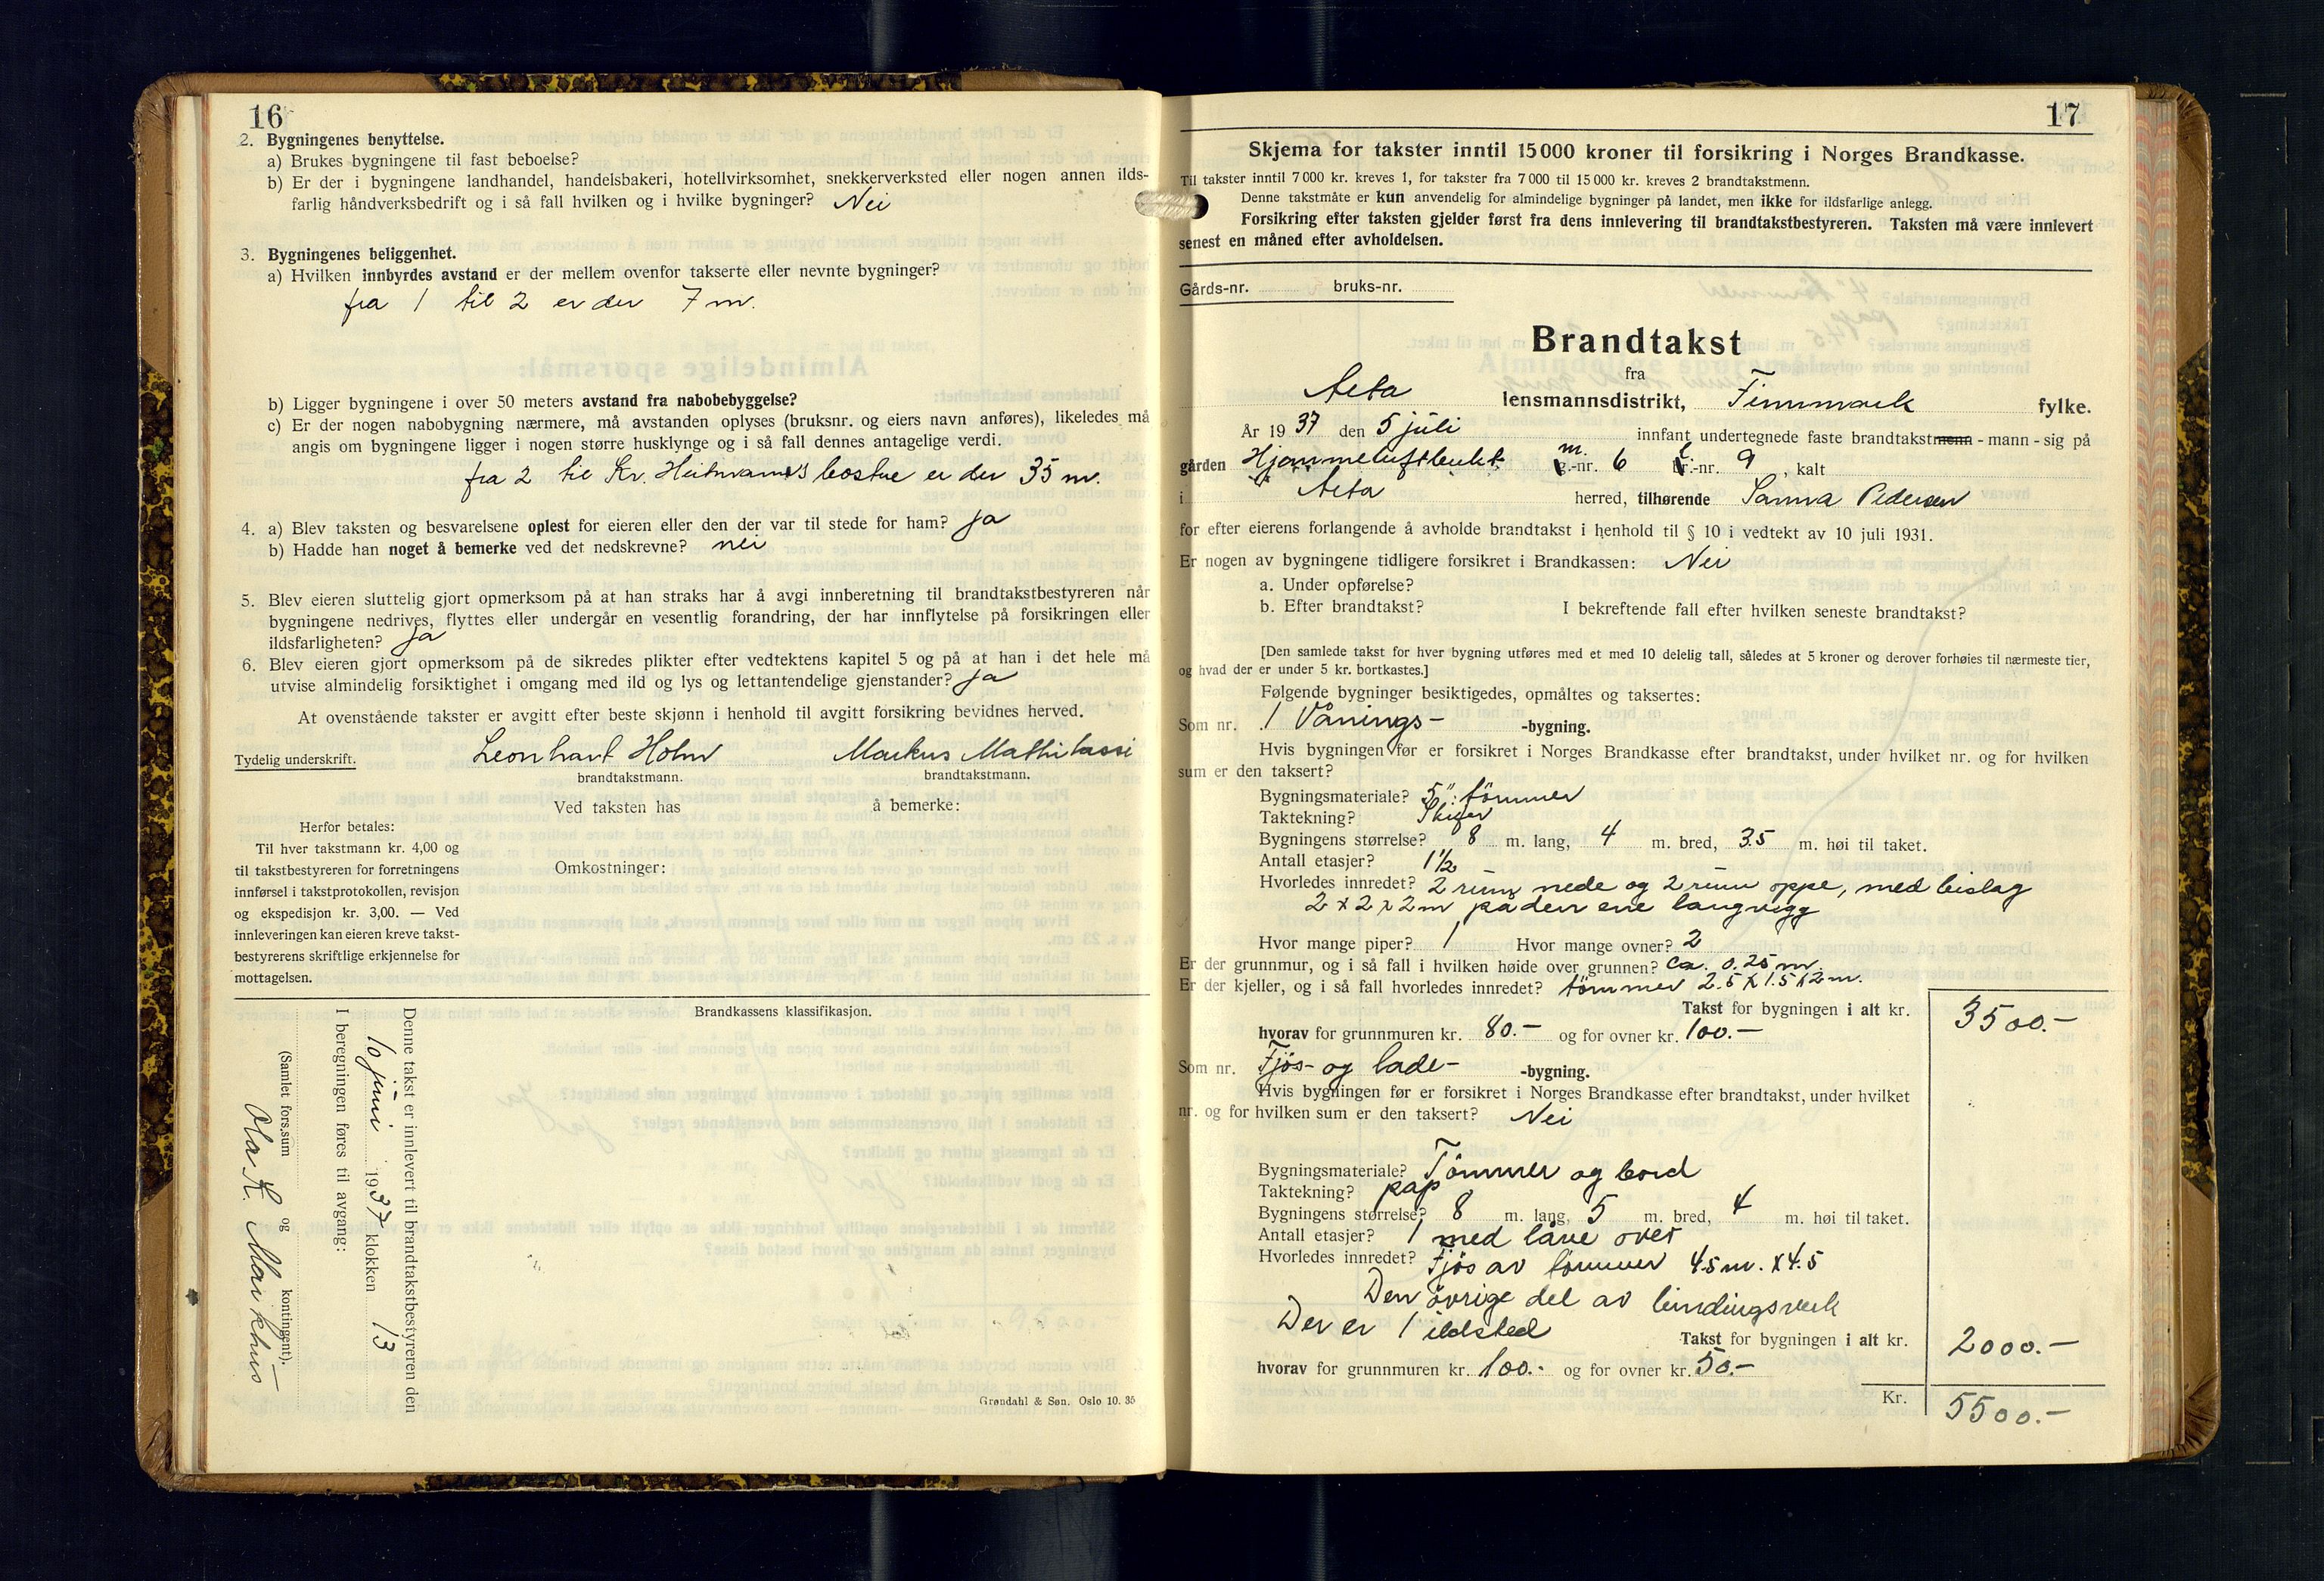 16
2. Bygningenes benyttelse.
a) Brukes bygningene til fast beboelse?
b) Er der i bygningene landhandel, handelsbakeri, hotellvirksomhet, snekkerverksted eller nogen annen ilds-
farlig håndverksbedrift og i så fall hvilken og i hvilke bygninger? Nei
3. Bygningenes beliggenhet.
a) Hvilken innbyrdes avstand er der mellem ovenfor takserte eller nevnte bygninger?
fra 1 til 2 er der 7 m.
b) Ligger bygningene i over 50 meters avstand fra nabobebyggelse?
c) Er der nogen nabobygning nærmere, må avstanden oplyses (bruksnr. og eiers navn anføres), likeledes må
angis om bygningene ligger i nogen større husklynge og i så fall dennes antagelige verdi.
fra 2 til Kr. Heitmann's bostue er der 35 m.
4. a) Blev taksten og besvarelsene oplest for eieren eller den der var til stede for ham? ja
b) Hadde han noget å bemerke ved det nedskrevne? nei
5. Blev eieren sluttelig gjort opmerksom på at han straks har å avgi innberetning til brandtakstbestyreren når
bygningene nedrives, flyttes eller undergår en vesentlig forandring, der har innflytelse på forsikringen eller
ildsfarligheten? ja
6. Blev eieren gjort opmerksom på de sikredes plikter efter vedtektens kapitel 5 og på at han i det hele må
utvise almindelig forsiktighet i omgang med ild og lys og lettantendelige gjenstander? ja
At ovenstående takster er avgitt efter beste skjønn i henhold til avgitt forsikring bevidnes herved.
Tydelig underskrift. Leonhart Holm Markus Mathilassi
brandtakstmann. brandtakstmann.
Ved taksten has å bemerke:
Herfor betales:
Til hver takstmann kr. 4,00 og
til takstbestyreren for forretningens
innførsel i takstprotokollen, revisjon
og ekspedisjon kr. 3,00. — Ved
innleveringen kan eieren kreve takst-
bestyrerens skriftlige erkjennelse for
mottagelsen.
Omkostninger:
Brandkassens klassifikasjon.
Denne takst er innlevert til brandtakstbestyreren den
10 juni 1937 klokken 13
I beregningen føres til avgang:
(Samlet fors.sum og kontingent).
Ola K. Markhus
Grøndahl & Søn. Oslo 10. 35
17
Skjema for takster inntil 15 000 kroner til forsikring i Norges Brandkasse.
Til takster inntil 7 000 kr. kreves 1, for takster fra 7 000 til 15 000 kr. kreves 2 brandtakstmenn.
Denne takstmåte er kun anvendelig for almindelige bygninger på landet, men ikke for ildsfarlige anlegg.
Forsikring efter taksten gjelder først fra dens innlevering til brandtakstbestyreren. Taksten må være innlevert
senest en måned efter avholdelsen.
Gårds-nr. bruks-nr.
Brandtakst
fra
Alta lensmannsdistrikt, Finnmark fylke.
År 1937 den 5 juli innfant undertegnede faste brandtakstmenn - mann - sig på
gården Hjemmeluftbukt m.-nr. 6 l.-nr. 9, kalt
i Alta herred, tilhørende Sanna Pedersen
for efter eierens forlangende å avholde brandtakst i henhold til § 10 i vedtekt av 10 juli 1931.
Er nogen av bygningene tidligere forsikret i Brandkassen: Nei
a. Under opførelse?
b. Efter brandtakst? I bekreftende fall efter hvilken seneste brandtakst?
[Den samlede takst for hver bygning utføres med et med 10 delelig tall, således at 5 kroner og derover forhøies til nærmeste tier,
og hvad der er under 5 kr. bortkastes.]
Følgende bygninger besiktigedes, opmåltes og taksertes:
Som nr. 1 Vånings- -bygning.
Hvis bygningen før er forsikret i Norges Brandkasse efter brandtakst, under hvilket nr. og for hvilken
sum er den taksert?
Bygningsmateriale? 5" tömmer
Taktekning? Skifer
Bygningens størrelse? 8 m. lang, 4 m. bred, 3.5 m. høi til taket.
Antall etasjer? 1 1/2
Hvorledes innredet? 2 rum nede og 2 rum oppe, med bislag
2 x 2 x 2 m på den ene langvegg
Hvor mange piper? 1 Hvor mange ovner? 2
Er der grunnmur, og i så fall i hvilken høide over grunnen? ca. 0.25 m.
Er der kjeller, og i så fall hvorledes innredet? tömmer 2.5 x 1.5 x 2 m.
Takst for bygningen i alt kr. 3500.-
hvorav for grunnmuren kr. 80.- og for ovner kr. 100.-
Som nr. Fjös- og lade- -bygning.
Hvis bygningen før er forsikret i Norges Brandkasse efter brandtakst, under hvilket
nr. og for hvilken sum er den taksert? Nei
Bygningsmateriale? Tömmer og bord
Taktekning? pap
Bygningens størrelse? 8 m. lang, 5 m. bred, 4 m. høi til taket.
Antall etasjer? 1 med låve over
Hvorledes innredet? Fjös av tömmer 4.5 m. x 4.5
Den övrige del av bindingsverk
Der er 1 ildsted
Takst for bygningen i alt kr. 2000.-
hvorav for grunnmuren kr. 100.- og for ovner kr. 50.-
Kr. 5500.-